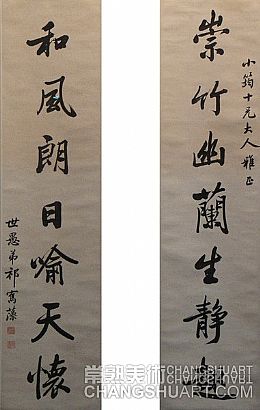 小筠十兄大人雅正
崇竹幽蘭生静趣
和風朗日喻天懷
世愚弟祁寯藻
常熟美術CHANGSHUART
CHANGSHUART.COM